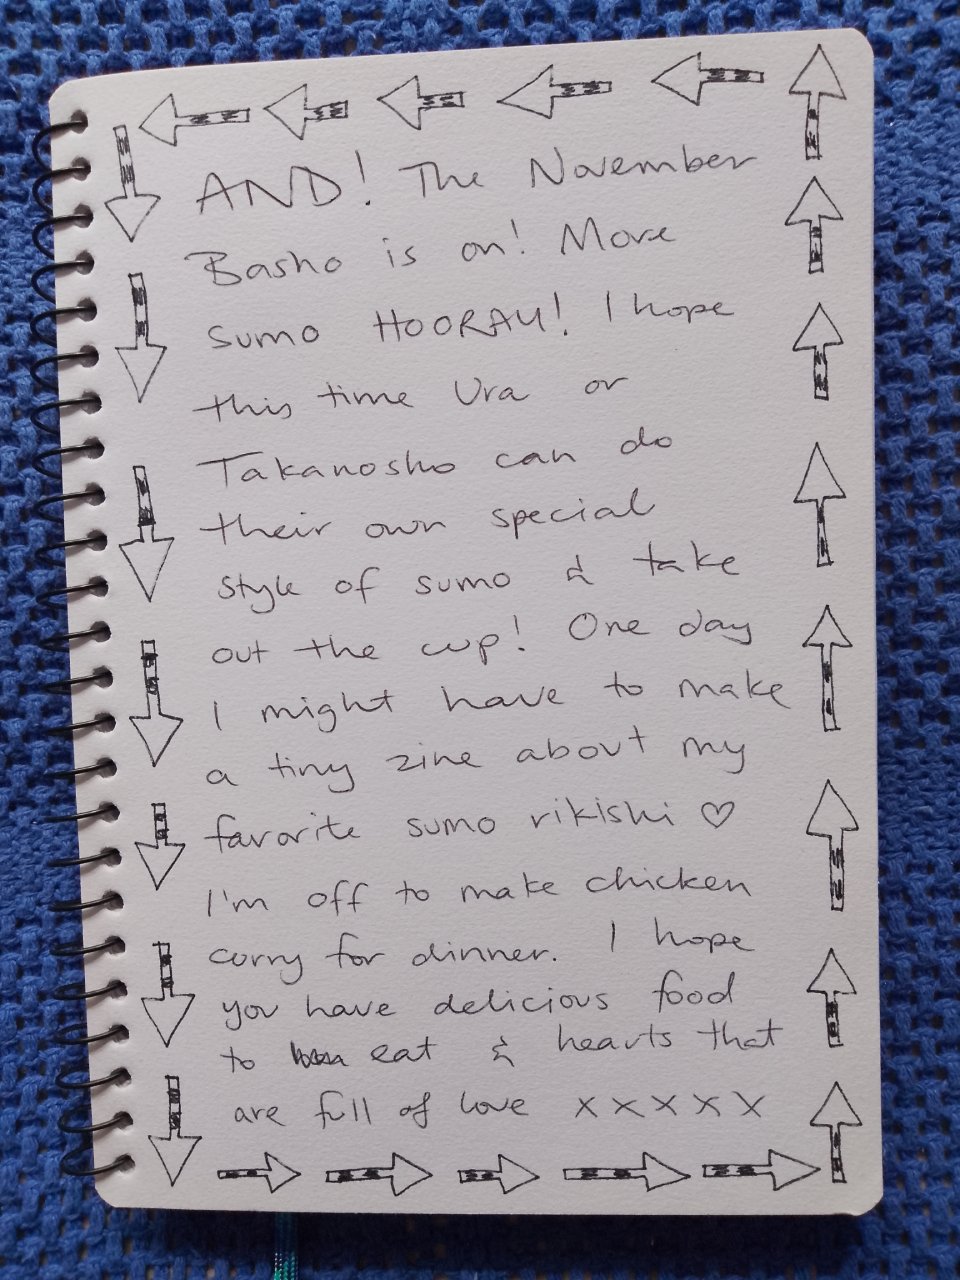 AND! The November
Basho is on! More
sumo HOORAY! I hope
this time Ura or
Takanosho can do
their own special
style of sumo & take
out the cup! One day
I might have to make
a tiny zine about my
favorite sumo rikishi ♡
I'm off to make chicken
curry for dinner. I hope
you have delicious food
to eat & hearts that
are full of love xxxxx